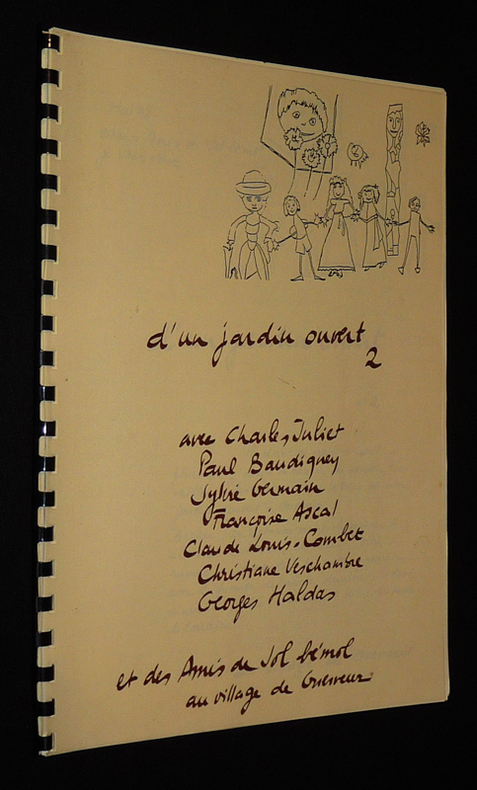 d'un jardin ouvert
2
avec Charles Juliet
Paul Baudiquey
Sylvie Germain
Françoise Ascal
Claude Louis-Combet
Christiane Veschambre
Georges Haldas
et des Amis de Sol bémol
au village de